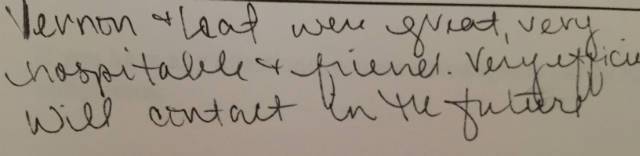 Vernon & were great, very
hospitable & friend. Very efficie
Will contact in the future